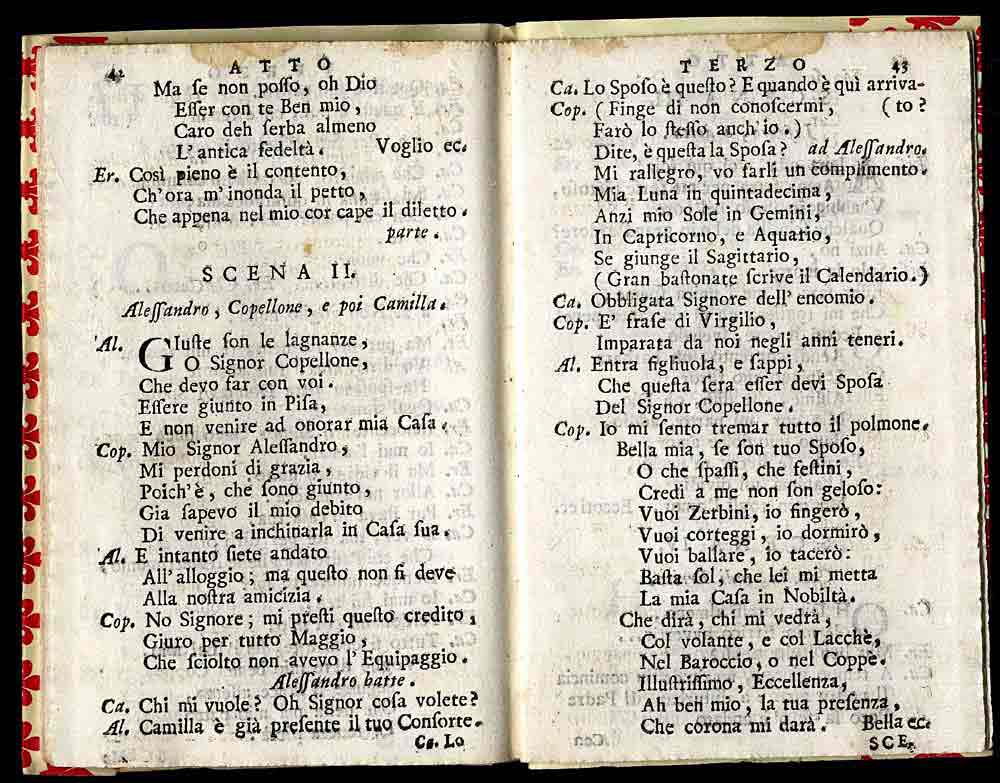 42 ATTO
Ma ſe non poſſo, oh Dio
Eſſer con te Ben mio,
Caro deh ſerba almeno
L'antica fedeltà. Voglio ec.
Er. Così pieno è il contento,
Ch'ora m'inonda il petto,
Che appena nel mio cor cape il diletto.
parte.
SCENA II.
Aleſſandro, Copellone, e poi Camilla.
Al. GIuſte ſon le lagnanze,
O Signor Copellone,
Che devo far con voi.
Eſſere giunto in Piſa,
E non venire ad onorar mia Caſa.
Cop. Mio Signor Aleſſandro,
Mi perdoni di grazia,
Poich'è, che ſono giunto,
Gia ſapevo il mio debito
Di venire a inchinarla in Caſa ſua.
Al. E intanto ſiete andato
All'alloggio; ma queſto non ſi deve
Alla noſtra amicizia.
Cop. No Signore; mi preſti queſto credito,
Giuro per tutto Maggio,
Che ſciolto non avevo l'Equipaggio.
Aleſſandro batte.
Ca. Chi mi vuole? Oh Signor coſa volete?
Al. Camilla è già preſente il tuo Conſorte.
Ca. Lo
TERZO 43
Ca. Lo Spoſo è queſto? E quando è quì arriva-
Cop. (Finge di non conoſcermi, (to?
Farò lo ſteſſo anch'io.)
Dite, è queſta la Spoſa? ad Aleſſandro.
Mi rallegro, vo farli un complimento.
Mia Luna in quintadecima,
Anzi mio Sole in Gemini,
In Capricorno, e Aquario,
Se giunge il Sagittario,
(Gran baſtonate ſcrive il Calendario.)
Ca. Obbligata Signore dell'encomio.
Cop. E' fraſe di Virgilio,
Imparata da noi negli anni teneri.
Al. Entra figliuola, e ſappi,
Che queſta ſera eſſer devi Spoſa
Del Signor Copellone.
Cop. Io mi ſento tremar tutto il polmone.
Bella mia, ſe ſon tuo Spoſo,
O che ſpaſſi, che feſtini,
Credi a me non ſon geloſo:
Vuoi Zerbini, io fingerò,
Vuoi corteggi, io dormirò,
Vuoi ballare, io tacerò:
Baſta ſol, che lei mi metta
La mia Caſa in Nobiltà.
Che dirà, chi mi vedrà,
Col volante, e col Lacchè,
Nel Baroccio, o nel Coppè.
Illuſtriſſimo, Eccellenza,
Ah beh mio, la tua preſenza,
Che corona mi darà. Bella ec.
SCE.